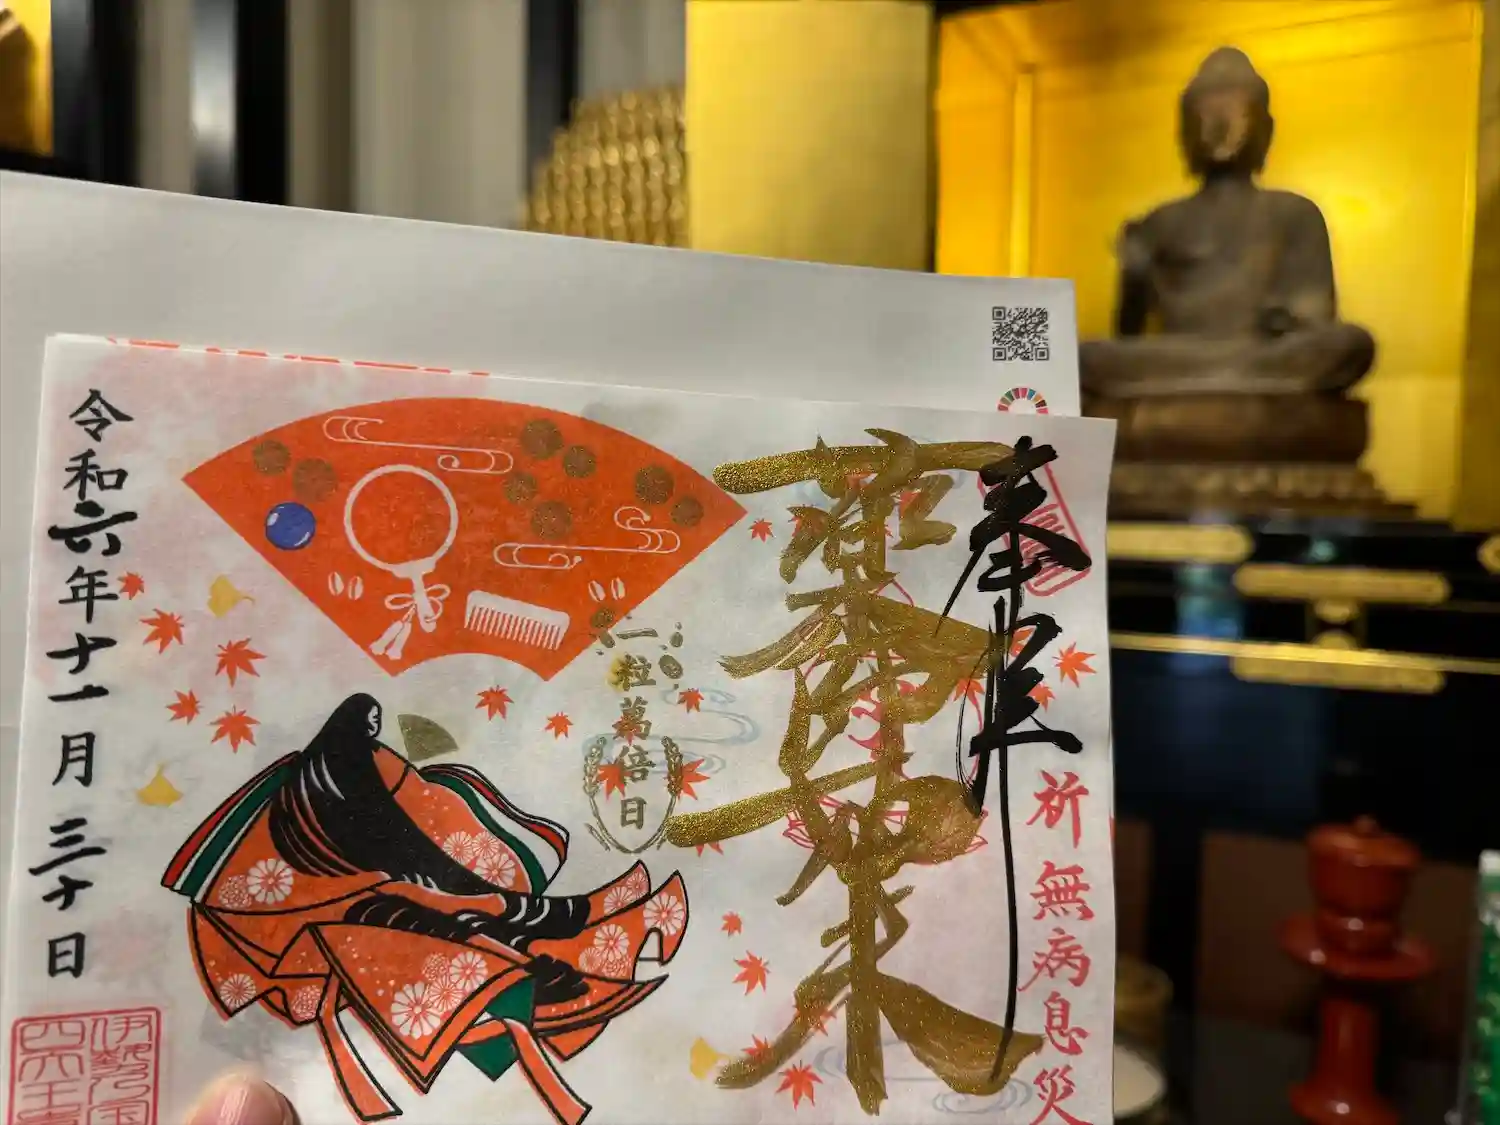 奉拝
祈無病息災
薬師如来
一粒萬倍日
令和六年十一月三十日
伊勢乃国
四天王寺